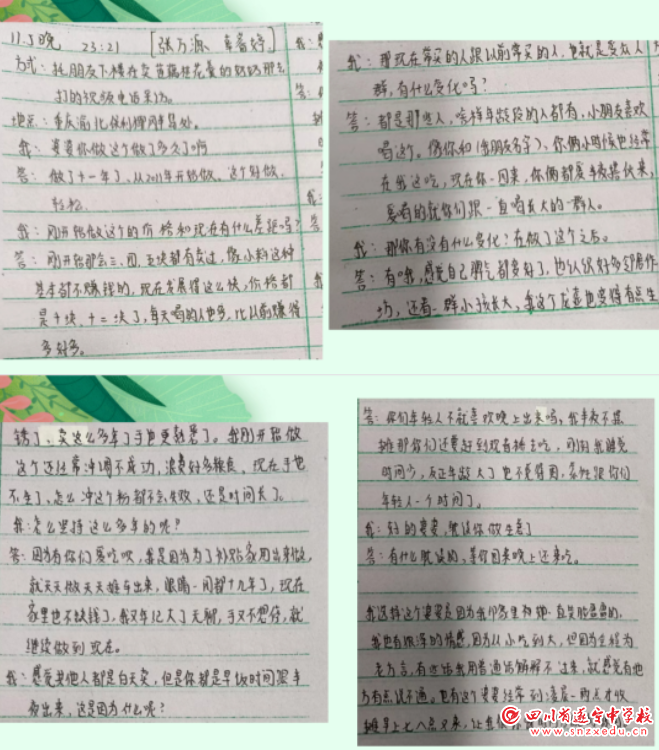 11.5晚 23:21 [张万源、
方式:托朋友下楼在卖莲藕桂花羹的奶奶那去
打的视频电话采访。
地点:重庆渝北保利
我:婆婆你做这个做了多久了啊
答:做了十一年了,从2011年开始做。这个好做,
轻松
我:刚开始做这个的价格和现在有什么差距吗?
答:刚开始那会三、四、五块都有卖过,像小料这种
基本都不赚钱的,现在发展得这么快,价格都
是十块、十二块了,每天喝的人也多,比以前赚得
多好多。
我:那现在常买的人跟以前常买的人,也就是卖众人
群,有什么变化吗?
答:都是那些人,啥样年龄段的人都有,小朋友喜欢
喝这个。像你和(我朋友名字),你俩小时候也经常
在我这吃,现在你一回来,你俩都
的就你们跟一直喝长大的一群人。
我:那你有没有什么变化?在做了这个之后。
答:有哦,感觉自己脾气都变好了,也认识好多邻居作
坊,还看一群小孩长大,我这个龙壶也变得有点生
锈了,卖这么多年了手也更熟悉了。我刚开始做
这个还经常冲调不成功,浪费好多粮食,现在手也
不生了,怎么冲这个粉都不会失败,还是时间长了。
我:怎么坚持这么多年的呢?
答:因为有你们爱吃呗,我是因为为了补贴家用出来做,
就天天做天天摊车出来,眼睛一闭都十九年了,现在
家里也不缺钱了,我又年纪大了无聊,手又不想停,就
继续做到现在。
我:感觉其他人都是白天卖,但是你都是早饭时间跟半
夜出来,这是因为什么呢?
答:你们年轻人不就喜欢晚上出来吗,我半夜不摆
摊那你们还要赶到现在摊去吃,刚刚我睡觉
时间少,反正年龄大了也不觉得困,索性跟你们
年轻人一个时间了。
我:好的婆婆,耽误你做生意了
答:有什么耽误的,等你回来晚上还来吃。
我选择这个婆婆是因为我和家里和她一直笑脸盈盈的,
我也有很深的情感,因为从小吃到大,但因为全程为
老方言,有些话我用普通话解解不过来,就感觉有地
方有点说不通。也有这个婆婆经常到凌晨一两点才收
摊早上七八点又来,让我
四川省遂宁中学校
www.snzxedu.cn